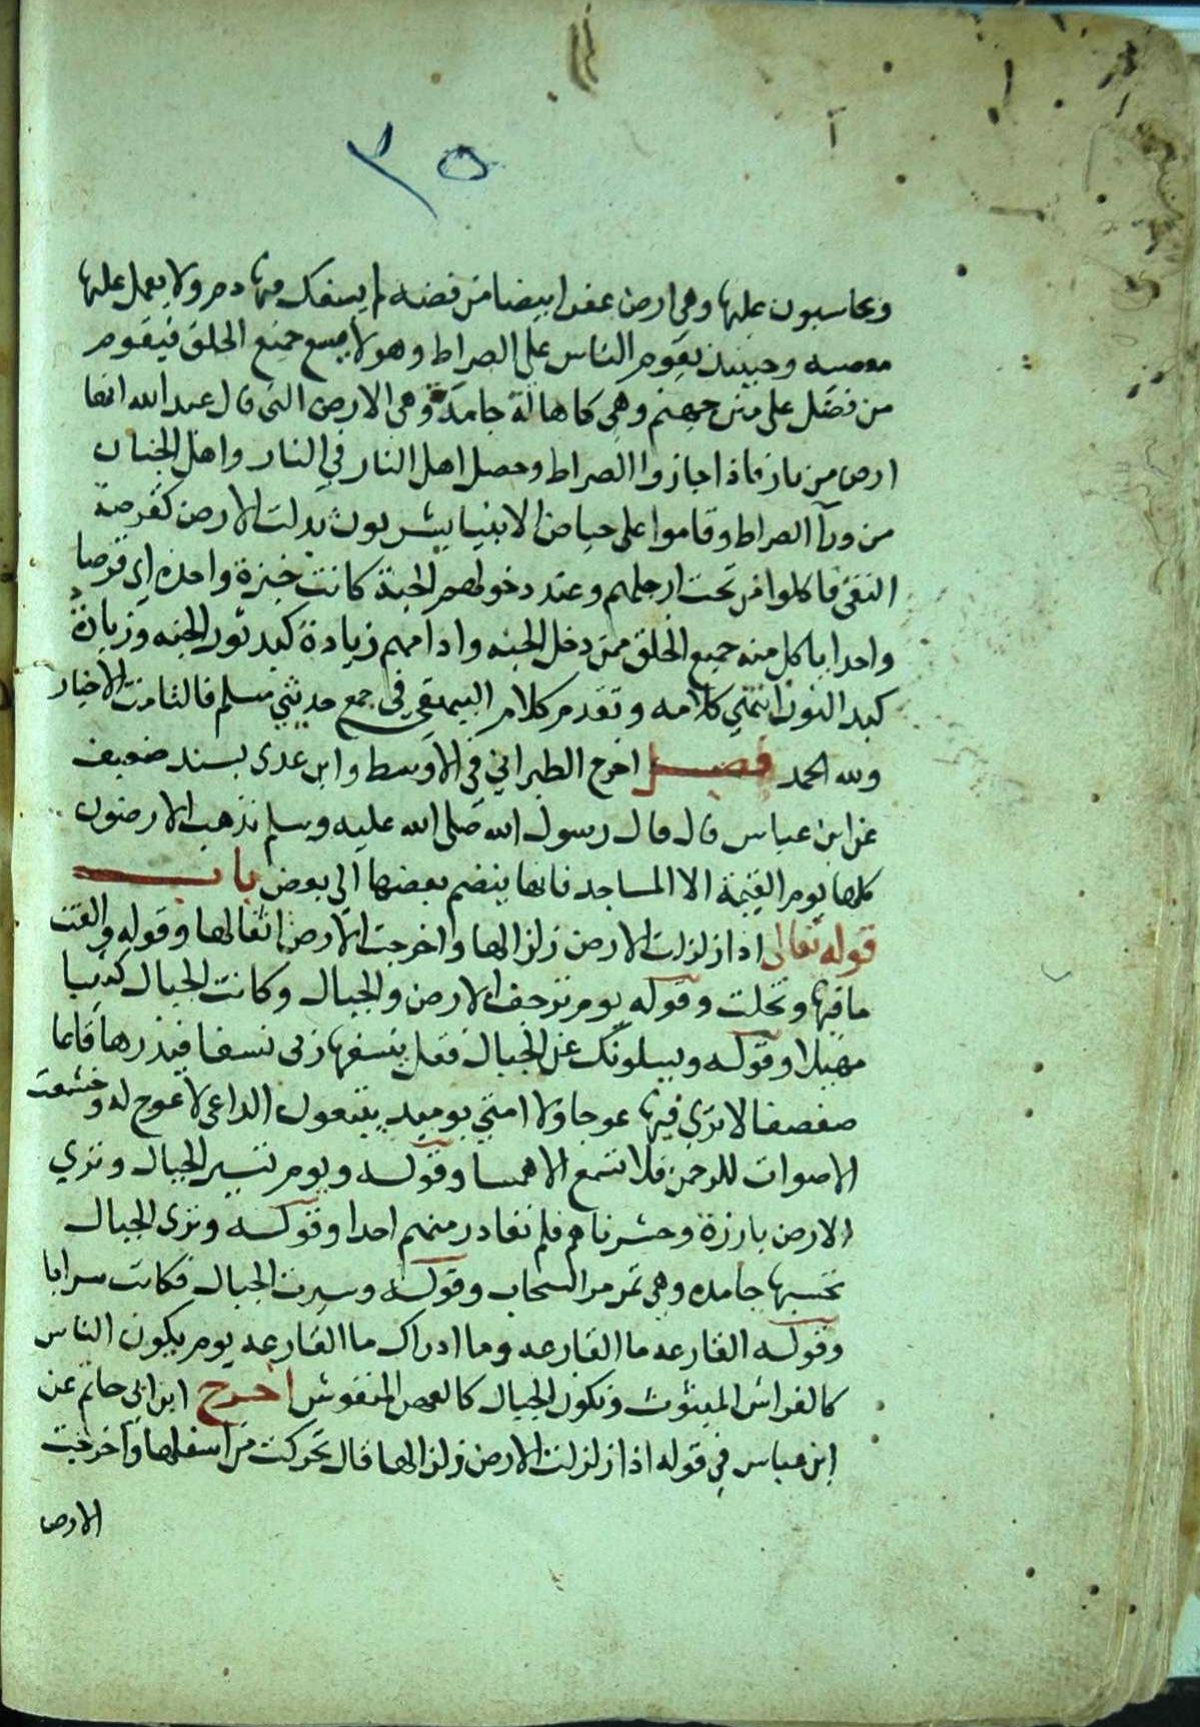 ٣٥
ويحاسبون عليها وهي ارض عفرا بيضا من فضه لم يسفك فيها دم ولا يعمل عليها
معصيه وحينيذ يقوم الناس على الصراط وهو لا يسع جميع الخلق فيقوم
من فضل على متن جهنم وهي كاهالة جامدة وهي الارض التي قال عبد الله انها
ارض من نار فاذا جازوا الصراط وحصل اهل النار في النار واهل الجنان
من ورآ الصراط وقاموا على حياض الانبيا يشربون بدلت الارض كقرصة
النقي فاكلوا من تحت ارجلهم وعند دخولهم الجنة كانت خبزة واحدة اي قرصا
واحدا ياكل منه جميع الخلق ممن دخل الجنه وادامهم زيادة كبد ثور الجنه وزيادة
كبد النون انتهي كلامه وتقدم كلام البيهقي في جمع حديثي مسلم فالتامت الاخبار
ولله الحمد فصل اخرج الطبراني في الاوسط وابن عدى بسند ضعيف
عن ابن عباس قال قال رسول الله صلى الله عليه وسلم تذهب الارضون
كلها يوم القيمة الا المساجد فانها ينضم بعضها الى بعض باب
قوله تعالى اذا زلزلت الارض زلزالها واخرجت الارض اثقالها وقوله والقت
ما فيها وتخلت وقوله يوم ترجف الارض والجبال وكانت الجبال كثيبا
مهيلا وقوله ويسلونك عن الجبال فقل ينسفها ربى نسفا فيذرها قاعا
صفصفا لا ترى فيها عوجا ولا امتي يوميذ يتبعون الداعى لا عوج له وخشعت
الاصوات للرحمن فلا تسمع الا همسا وقوله ويوم نسير الجبال وترى
الارض بارزة وحشرناهم فلم نغادر منهم احدا وقوله وترى الجبال
تحسبها جامده وهي تمر مر السحاب وقوله وسيرت الجبال فكانت سرابا
وقوله القارعه ما القارعه وما ادراك ما القارعه يوم يكون الناس
كالفراش المبثوث وتكون الجبال كالعهن المنفوش اخرج ابن ابي حاتم عن
ابن عباس في قوله اذا زلزلت الارض زلزالها قال تحركت من اسفلها واخرجت
الارض